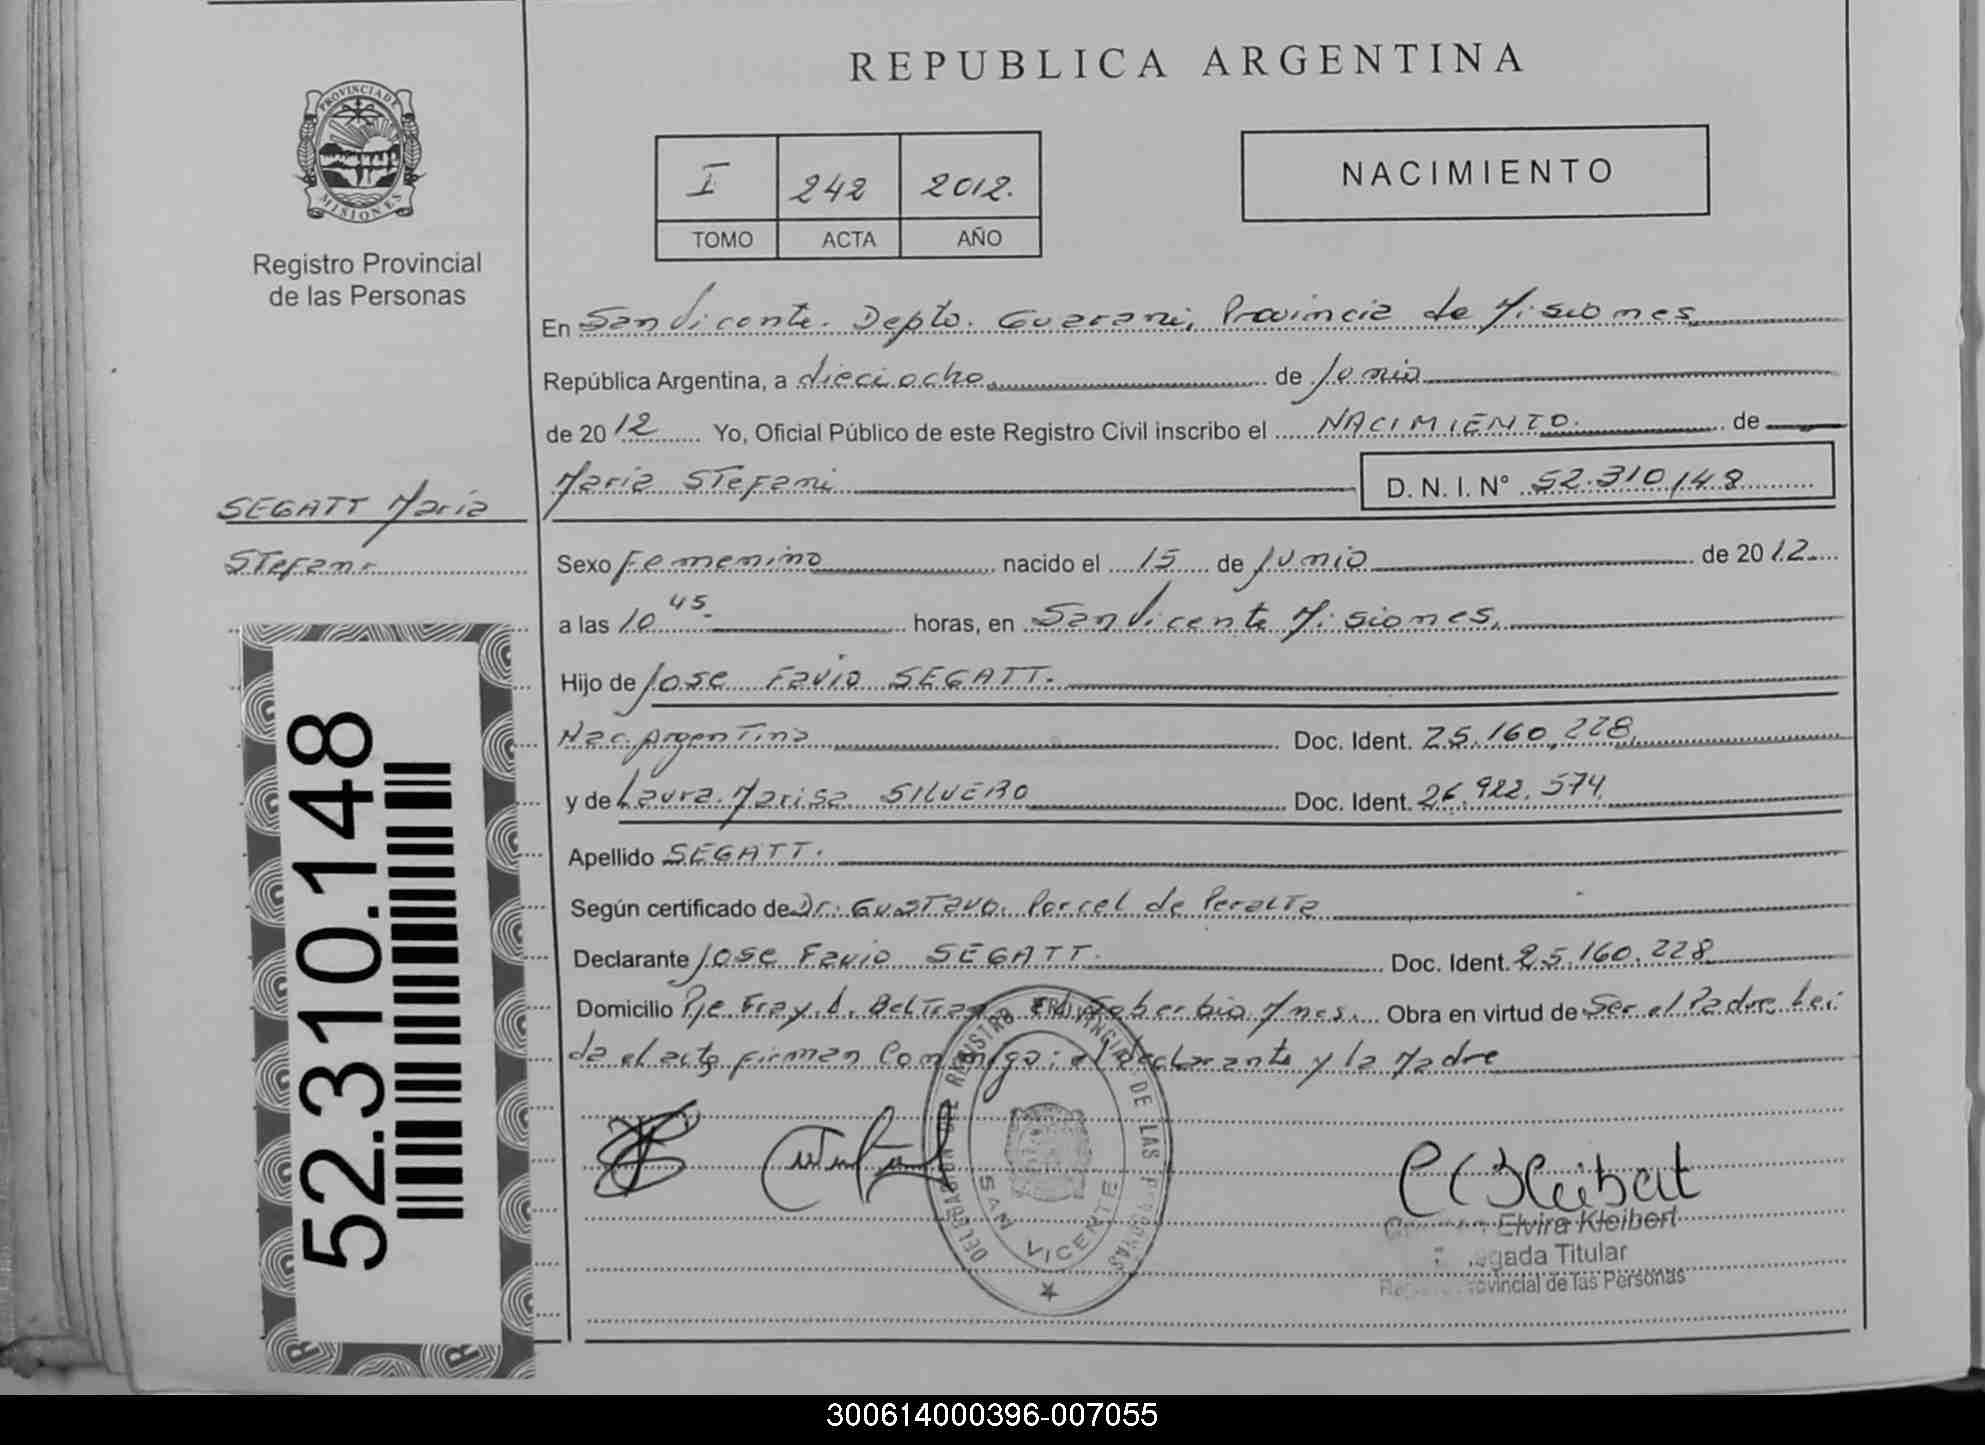 REPUBLICA ARGENTINA
PROVINCIA DE
MISIONES
Registro Provincial
de las Personas
I 242 2012.
TOMO ACTA AÑO
NACIMIENTO
En San Vicente. Depto. Guarani, Provincia de Misiones
República Argentina, a dieciocho de Junio
de 2012 Yo, Oficial Público de este Registro Civil inscribo el NACIMIENTO. de
Maria Stefani D. N. I. N° 52.310,148
SEGATT Maria
Stefani
Sexo Femenino nacido el 15 de Junio de 2012
a las 10 45. horas, en San Vicente Misiones,
Hijo de Jose Favio SEGATT.
Nac. Argentina Doc. Ident. 25.160,228
y de Laura Marisa SILVERO Doc. Ident. 26.922.574
Apellido SEGATT.
Según certificado de Dr. Gustavo Porcel de Peralta
Declarante Jose Favio SEGATT. Doc. Ident. 25.160.228
Domicilio Pje Fray L. Beltran El Soberbio Mnes. Obra en virtud de Ser el Padre. Lei
da el acta firman conmigo: el declarante y la Madre
52.310.148
DELEGACION DE REGISTRO PROVINCIAL DE LAS PERSONAS
SAN VICENTE
C Kleibert
Elvira Kleibert
Titular
Provincial de las Personas
300614000396-007055